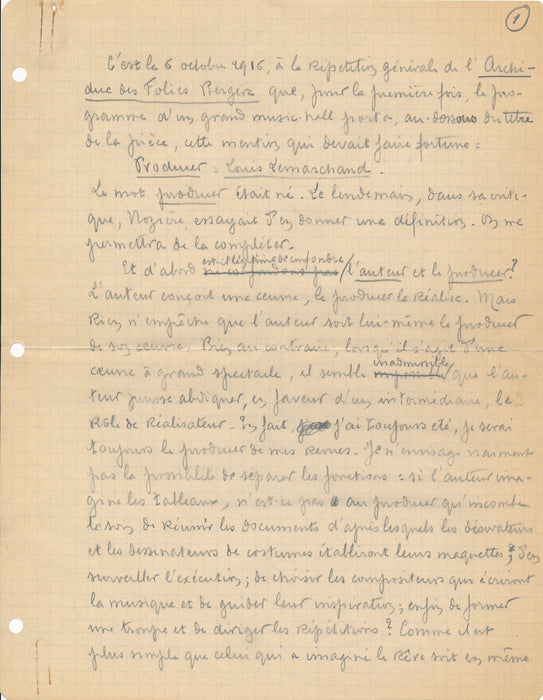 1
C'est le 6 octobre 1916, à la Répétition générale de l'Archi-
duc des Folies-Bergère que, pour la première fois, le pro-
gramme d'un grand music-hall porta, au-dessous du titre
de la pièce, cette mention qui devait faire fortune :
Producer : Louis Lemarchand.
Le mot producer était né. Le lendemain, dans sa criti-
que, Nozière essayait d'en donner une définition. On me
permettra de la compléter.
Et d'abord est-il légitime de confondre l'auteur et le producer ?
L'auteur conçoit une œuvre, le producer la Réalise. Mais
Rien n'empêche que l'auteur soit lui-même le producer
de son œuvre. Bien au contraire, lorsqu'il s'agit d'une
œuvre à grand spectacle, il semble inadmissible que l'au-
teur puisse abdiquer, en faveur d'un intermédiaire, le
Rôle de Réalisateur. En fait, j'ai toujours été, je serai
toujours le producer de mes Revues. Je n'envisage vraiment
pas la possibilité de séparer les fonctions : si l'auteur ima-
gine les tableaux, n'est-ce pas au producer qu'incombe
le soin de Réunir les documents d'après lesquels les décorateurs
et les dessinateurs de costumes établiront leurs maquettes ; d'en
surveiller l'exécution ; de choisir les compositeurs qui écriront
la musique et de guider leur inspiration ; enfin de former
une troupe et de diriger les Répétitions ? Comme il est
plus simple que celui qui a imaginé le Rêve soit en même